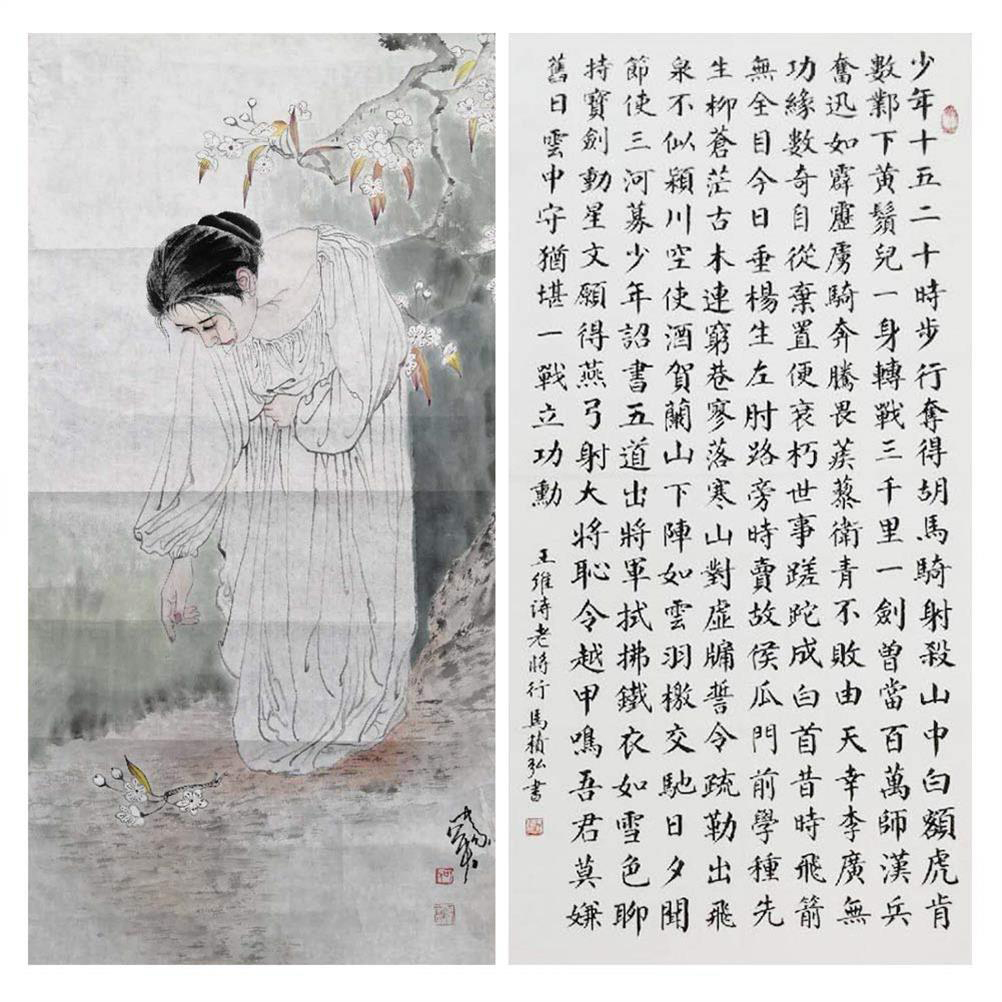 少年十五二十時步行奪得胡馬騎射殺山中白額虎肯
數鄴下黃鬚兒一身轉戰三千里一劍曾當百萬師漢兵
奮迅如霹靂虜騎奔騰畏蒺藜衛青不敗由天幸李廣無
功緣數奇自從棄置便衰朽世事蹉跎成白首昔時飛箭
無全目今日垂楊生左肘路旁時賣故侯瓜門前學種先
生柳蒼茫古木連窮巷寥落寒山對虛牖誓令疏勒出飛
泉不似穎川空使酒賀蘭山下陣如雲羽檄交馳日夕聞
節使三河募少年詔書五道出將軍拭拂鐵衣如雪色聊
持寶劍動星文願得燕弓射大將恥令越甲鳴吾君莫嫌
舊日雲中守猶堪一戰立功勳
王維詩老將行馬楨弘書